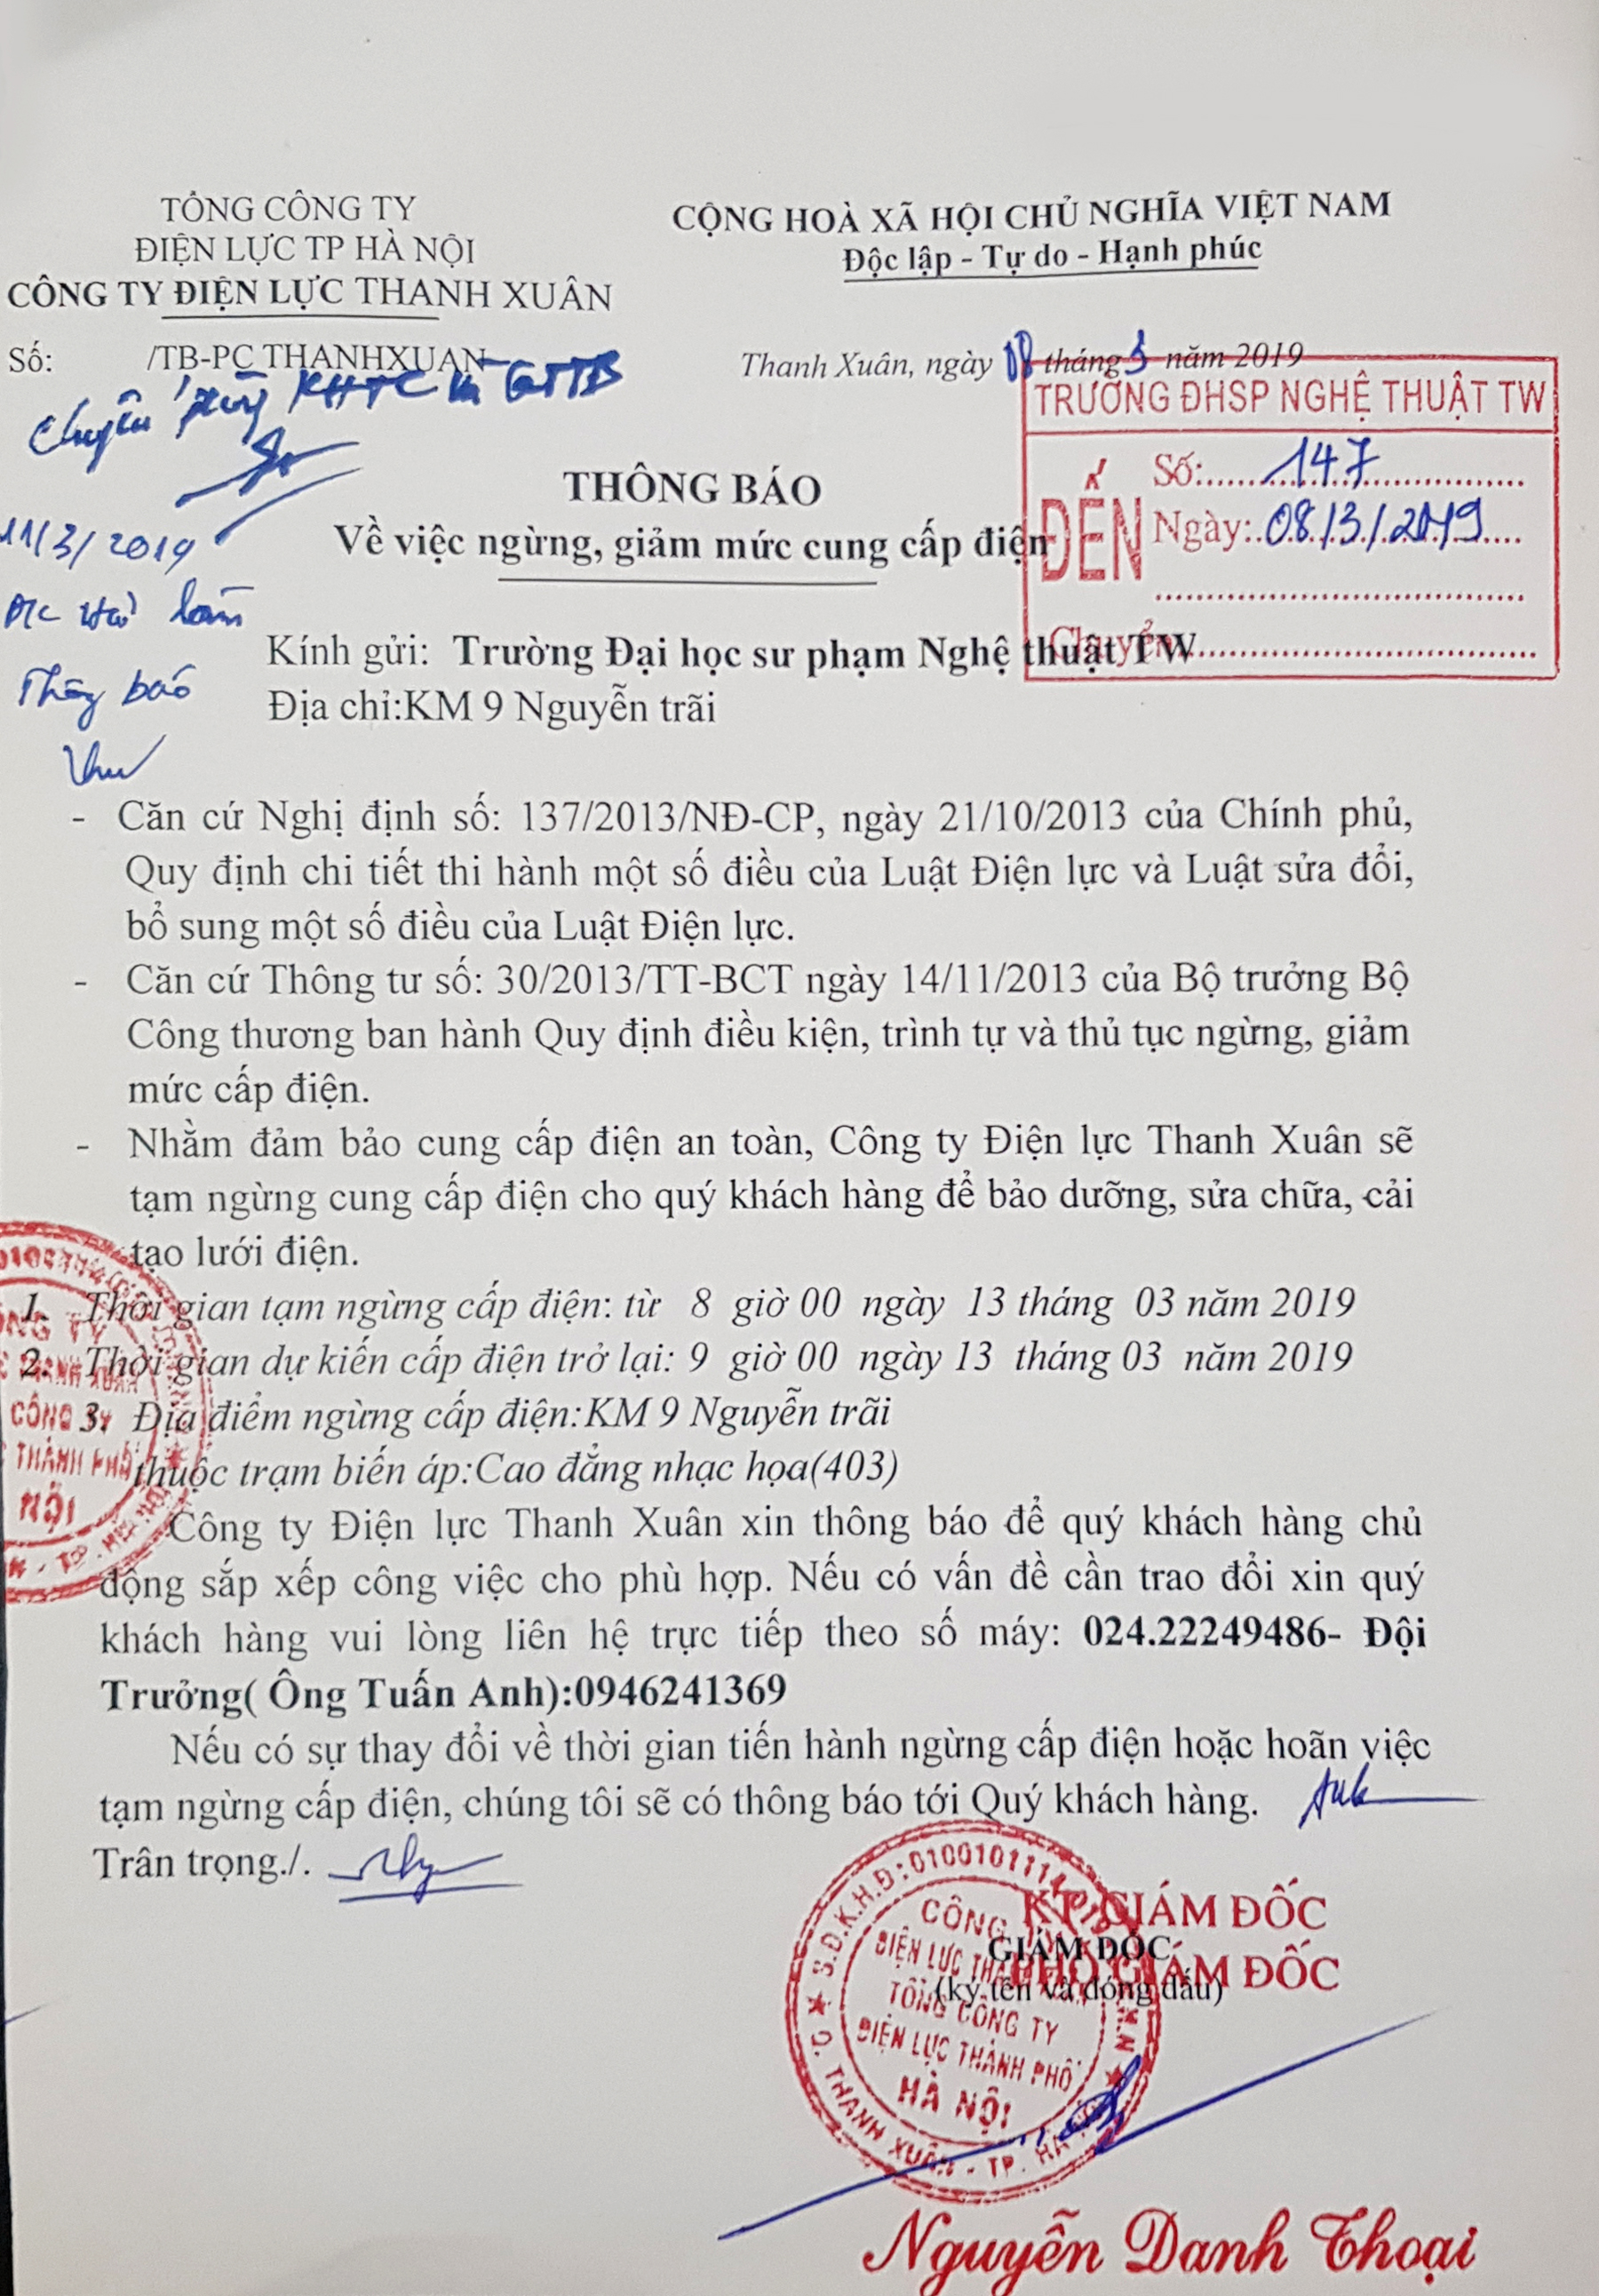 TỔNG CÔNG TY
ĐIỆN LỰC TP HÀ NỘI
CÔNG TY ĐIỆN LỰC THANH XUÂN
CỘNG HOÀ XÃ HỘI CHỦ NGHĨA VIỆT NAM
Độc lập - Tự do - Hạnh phúc
Số: /TB-PC THANHXUAN
Thanh Xuân, ngày 08 tháng 3 năm 2019
Chuyển phòng KHTC
11/3/2019
Thông báo
TRƯỜNG ĐHSP NGHỆ THUẬT TW
ĐẾN
Số:.....147.....
Ngày:.08/3/2019....
Chuyển:.....
THÔNG BÁO
Về việc ngừng, giảm mức cung cấp điện
Kính gửi: Trường Đại học sư phạm Nghệ thuật TW
Địa chỉ:KM 9 Nguyễn trãi
- Căn cứ Nghị định số: 137/2013/NĐ-CP, ngày 21/10/2013 của Chính phủ,
Quy định chi tiết thi hành một số điều của Luật Điện lực và Luật sửa đổi,
bổ sung một số điều của Luật Điện lực.
- Căn cứ Thông tư số: 30/2013/TT-BCT ngày 14/11/2013 của Bộ trưởng Bộ
Công thương ban hành Quy định điều kiện, trình tự và thủ tục ngừng, giảm
mức cấp điện.
- Nhằm đảm bảo cung cấp điện an toàn, Công ty Điện lực Thanh Xuân sẽ
tạm ngừng cung cấp điện cho quý khách hàng để bảo dưỡng, sửa chữa, cải
tạo lưới điện.
1. Thời gian tạm ngừng cấp điện: từ 8 giờ 00 ngày 13 tháng 03 năm 2019
2. Thời gian dự kiến cấp điện trở lại: 9 giờ 00 ngày 13 tháng 03 năm 2019
3. Địa điểm ngừng cấp điện:KM 9 Nguyễn trãi
thuộc trạm biến áp:Cao đẳng nhạc họa(403)
Công ty Điện lực Thanh Xuân xin thông báo để quý khách hàng chủ
động sắp xếp công việc cho phù hợp. Nếu có vấn đề cần trao đổi xin quý
khách hàng vui lòng liên hệ trực tiếp theo số máy: 024.22249486- Đội
Trưởng( Ông Tuấn Anh):0946241369
Nếu có sự thay đổi về thời gian tiến hành ngừng cấp điện hoặc hoãn việc
tạm ngừng cấp điện, chúng tôi sẽ có thông báo tới Quý khách hàng.
Trân trọng./.
KT.GIÁM ĐỐC
GIÁM ĐỐC
PHÓ GIÁM ĐỐC
(ký tên và đóng dấu)
CÔNG TY
ĐIỆN LỰC THANH XUÂN
TỔNG CÔNG TY
ĐIỆN LỰC THÀNH PHỐ
HÀ NỘI
Q. THANH XUÂN - TP. HÀ NỘI
Nguyễn Danh Thoại